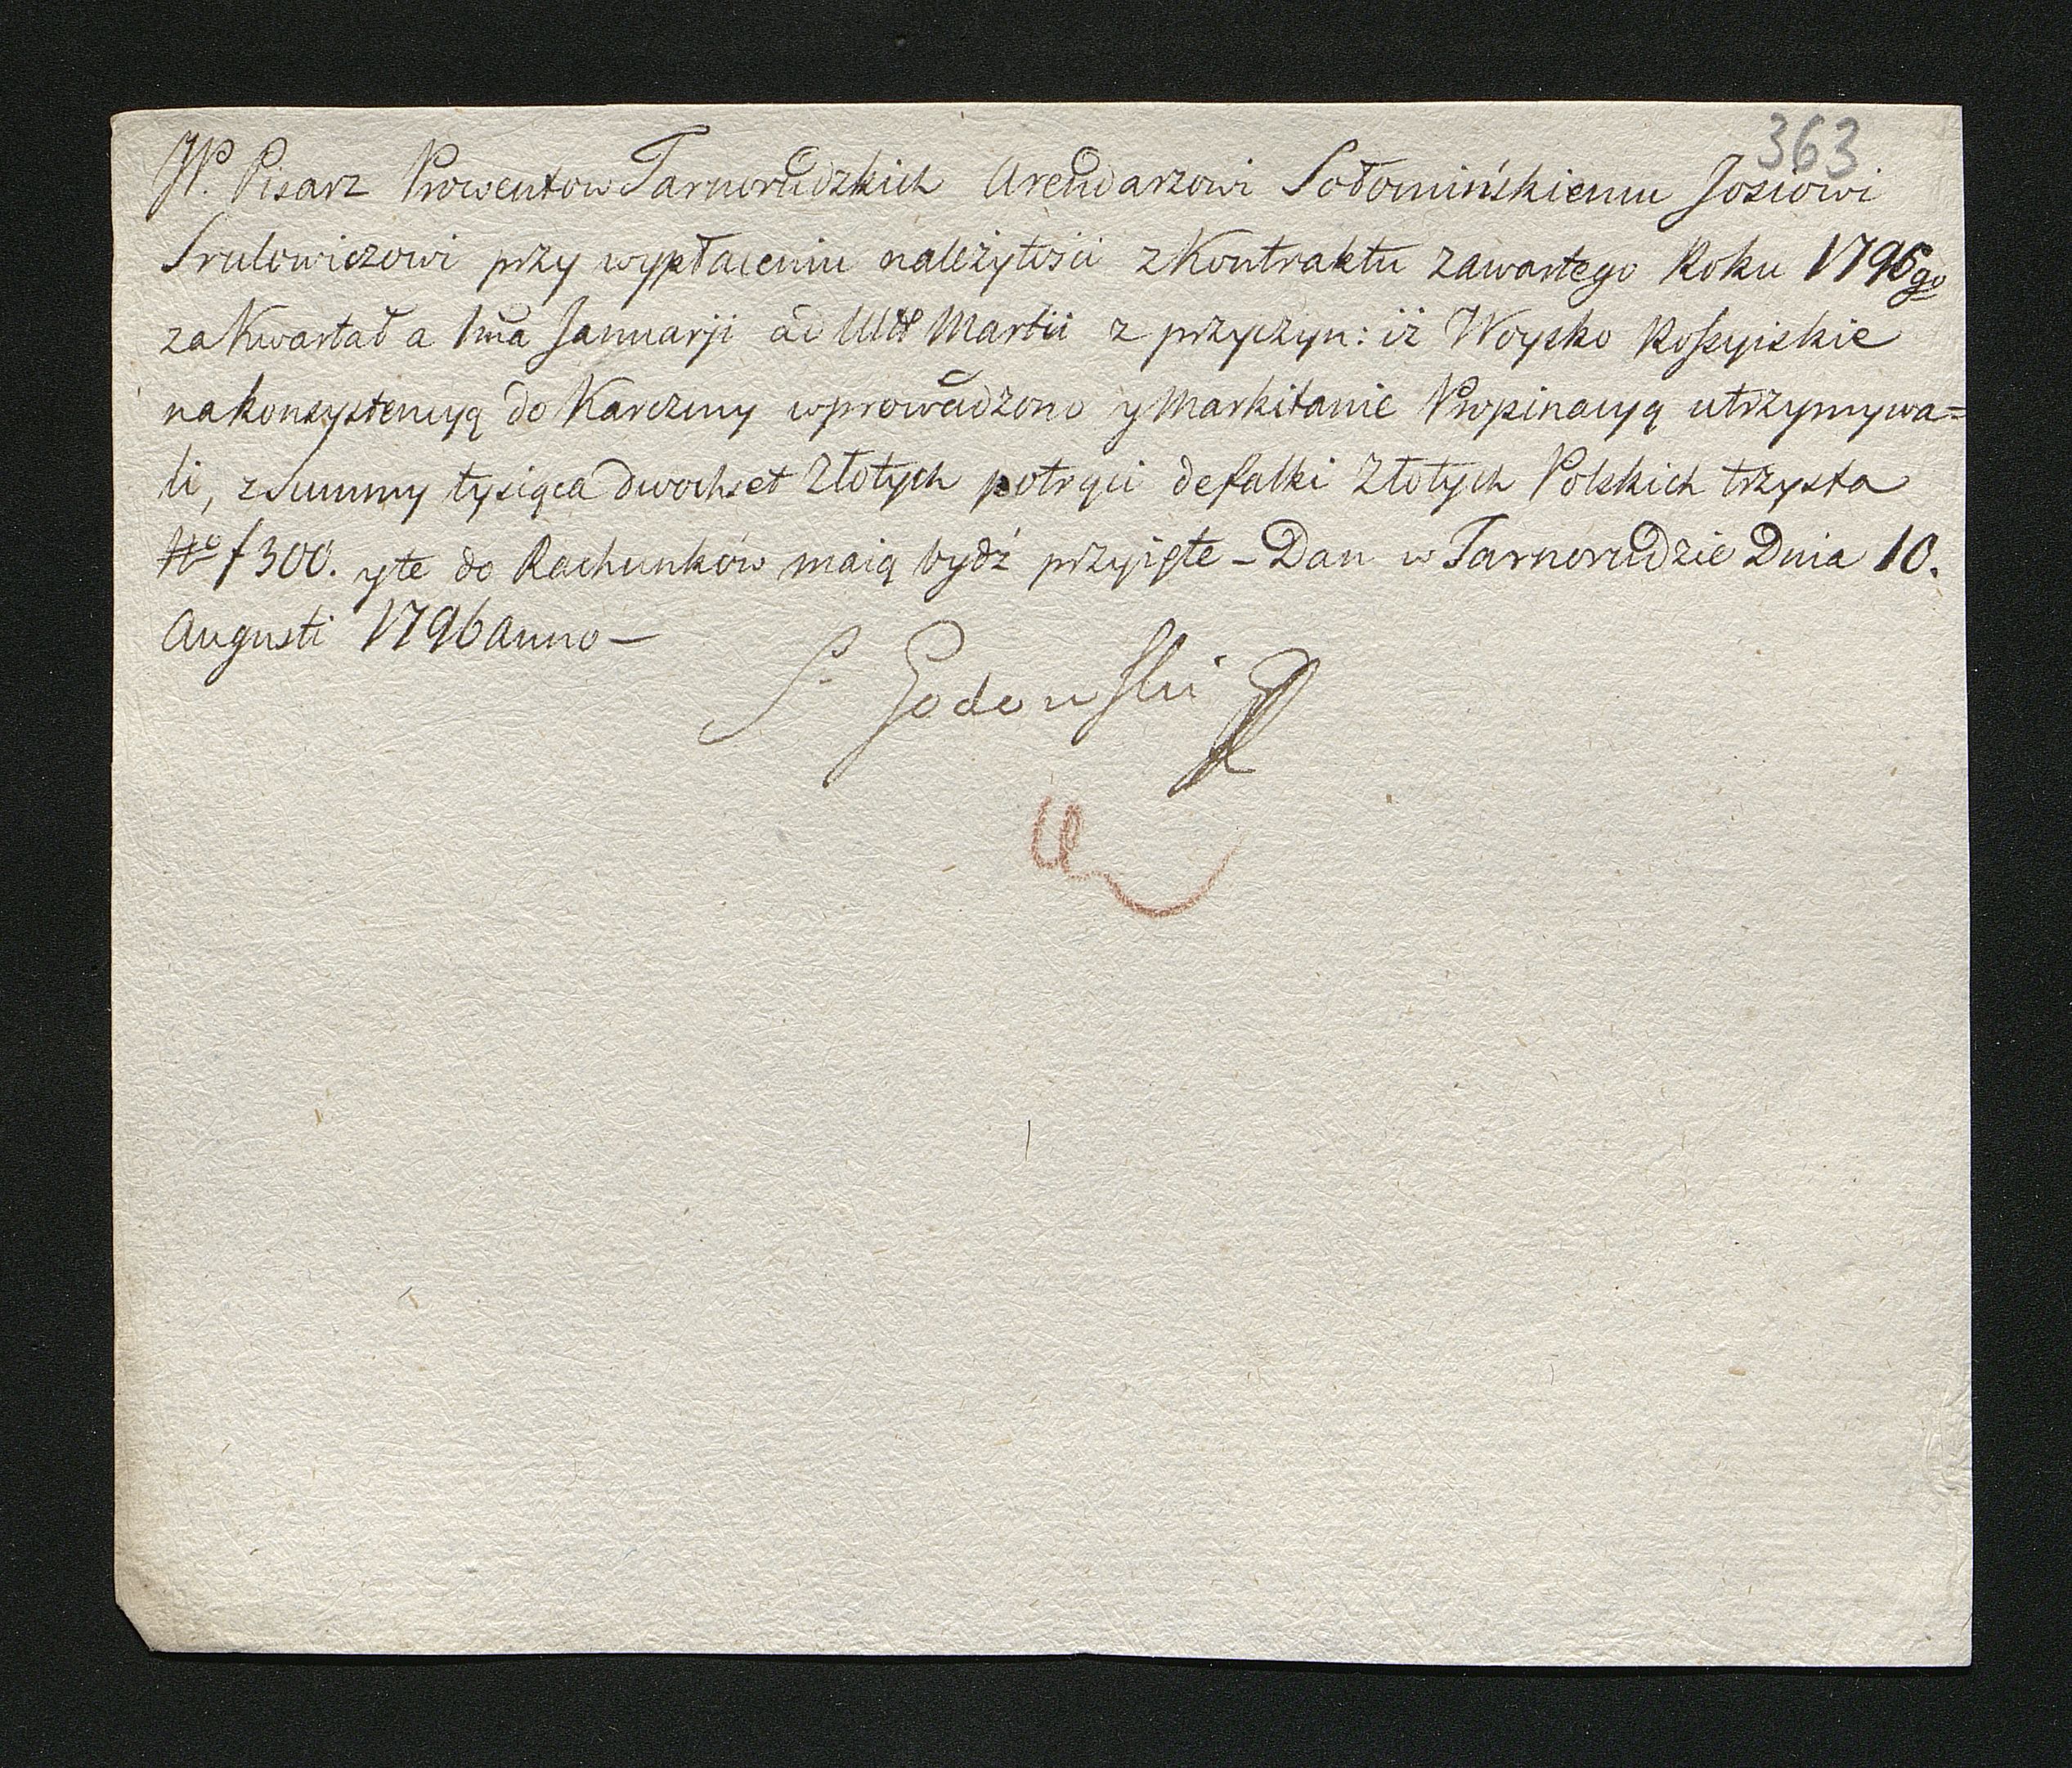 363
JP. Pisarz Prowentow Tarnorudzkich Arendarzowi Sołomińskiemu Josiowi
Srulowiczowi przy wypłaceniu należytości z Kontraktu zawartego Roku 1796go
za Kwartał a 1ma Januarji ad Martii z przyczyn: iż Woysko Rossyiskie
na konsystencyą do Karczmy wprowadzono y Markitanie Propinacyą utrzymywa=
li, z Summy tysiąca dwochset Złotych potrąci defalki Złotych Polskich trzysta
No f 300. y te do Rachunków maią bydź przyięte – Dan w Tarnorudzie Dnia 10.
Augusti 1796 anno –